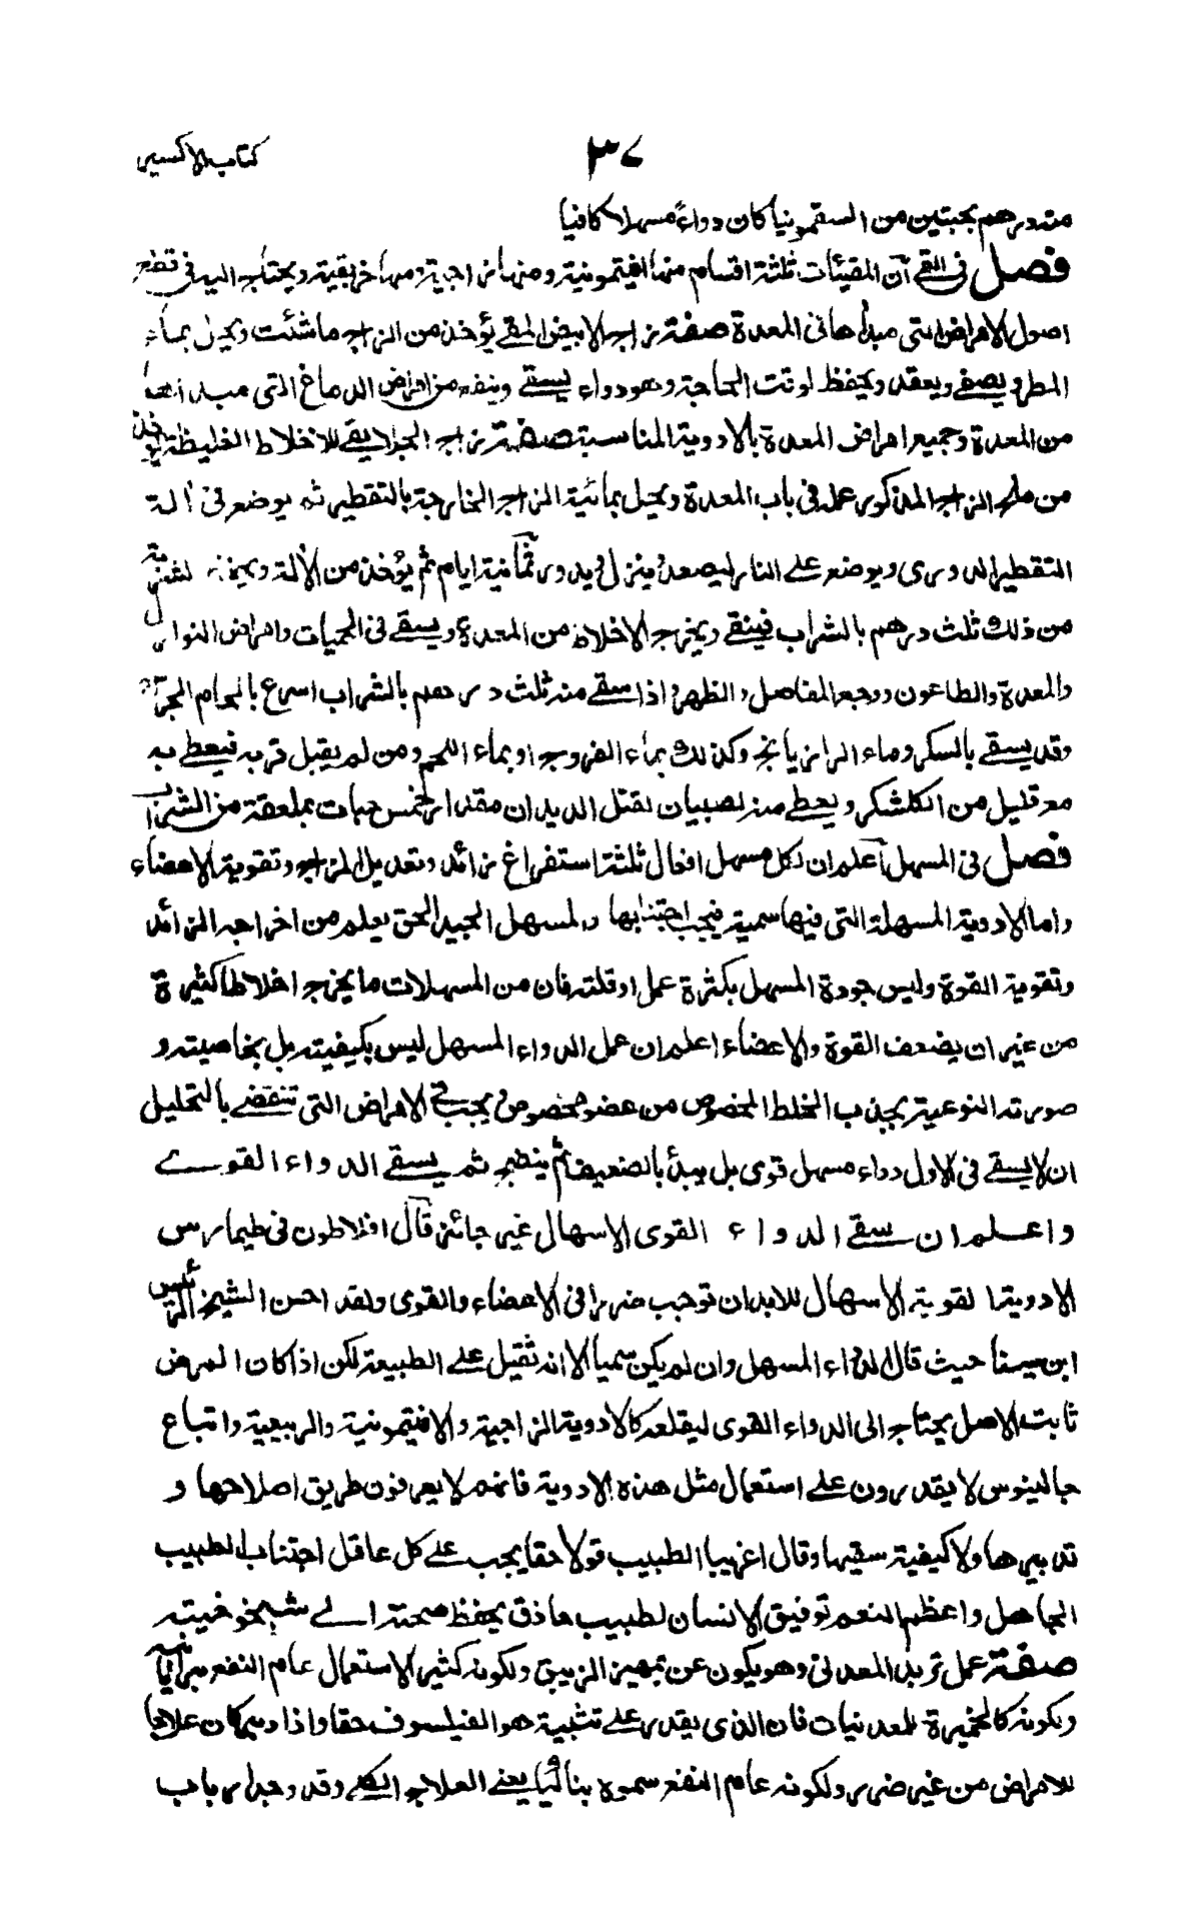 كتاب الاكسير
٣٧
منه درهم بحبتين من السقمونيا كان دواءً مسهلا كافيا
فصل في القئ أن المقيئات ثلثة اقسام منها افيتمونية ومنها زاجية ومنها خربقية ويحتاج اليه في قطع
اصول الامراض التي مبدأها في المعدة صفة زاج الابيض المقئ يؤخذ من الزاج ما شئت ويحل بماء
المطر ويصفى ويعقد ويحفظ لوقت الحاجة وهو دواء يسقى وينفع من امراض الدماغ التي مبدأها
من المعدة وجميع امراض المعدة بالادوية المناسبة صفة زاج لا يقئ للاخلاط الغليظة يؤخذ
من ملح الزاج المذكور عمله في باب المعدة ويحل بمائية الزاج الخارجة بالتقطير ثم يوضع في آلة
التقطير الدورى ويوضع على النار ليصعد وينزل ويدور ثمانية ايام ثم يؤخذ من الآلة ويحفظ لشربة
من ذلك ثلث درهم بالشراب فينقى ويخرج الاخلاط من المعدة ويسقى في الحميات وامراض النوازل
والمعدة والطاعون ووجع المفاصل والظهر واذا سقى منه ثلث درهم بالشراب اسرع بالحام
وقد يسقى بالسكر وماء الرازيانج وكذلك بماء الفروج او بماء اللحم ومن لم يقبل قربه فيعطى به
مع قليل من الكلشكر ويعطى منه لصبيان لقتل الديدان مقدار خمس حبات بملعقة من الشراب
فصل في المسهل أعلم ان لكل مسهل افعال ثلثة استفراغ زائد وتعديل المزاج وتقوية الاعضاء
واما الادوية المسهلة التي فيها سمية فيجب اجتنابها والمسهل الجيد الحق يعلم من اخراجه الزائد
وتقوية القوة وليس جودة المسهل بكثرة عمل او قلته فان من المسهلات ما يخرج اخلاطا كثيرة
من غير ان يضعف القوة والاعضاء اعلم ان عمل الدواء المسهل ليس بكيفيته بل بخاصيته و
صورته النوعية يجذب الخلط المخصوص من عضو مخصوص ويجب في الامراض التي تنقضى بالتحليل
ان لا يسقى في الاول دواء مسهل قوى بل يبدأ بالضعيف ثم ينضج ثم يسقى الدواء القوى
واعلم ان سقى الدواء القوى الاسهال غير جائز قال افلاطون في طيمارس
الادوية القوية الاسهال للابدان توجب ضررا في الاعضاء والقوى ولقد احسن الشيخ الرئيس
ابن سينا حيث قال الدواء المسهل وان لم يكن سميا الا انه ثقيل على الطبيعة لكن اذا كان المرض
ثابت الاصل يحتاج الى الدواء القوى ليقلعه كالادوية الزاجية والافيتمونية والربيعية واتباع
جالينوس لا يقدرون على استعمال مثل هذه الادوية فانهم لا يعرفون طريق اصلاحها و
تدبيرها ولا كيفية سقيها وقال اغريبا الطبيب قولا حقا يجب على كل عاقل اجتناب الطبيب
الجاهل واعظم النعم توفيق الانسان لطبيب حاذق يحفظ صحته الى شيخوخيته
صفة عمل تربد المعدنى وهو يكون عن تمهير الزيبق ولكونه كثير الاستعمال عام النفع
ولكونه كالخميرة للمعدنيات فان الذى يقدر على تثبيته هو الفيلسوف حقا واذا دبر كان علاجا
للامراض من غير ضرر ولكونه عام النفع سموه بنالثيا يعنى العلاج الكلى وقد وجدارباب